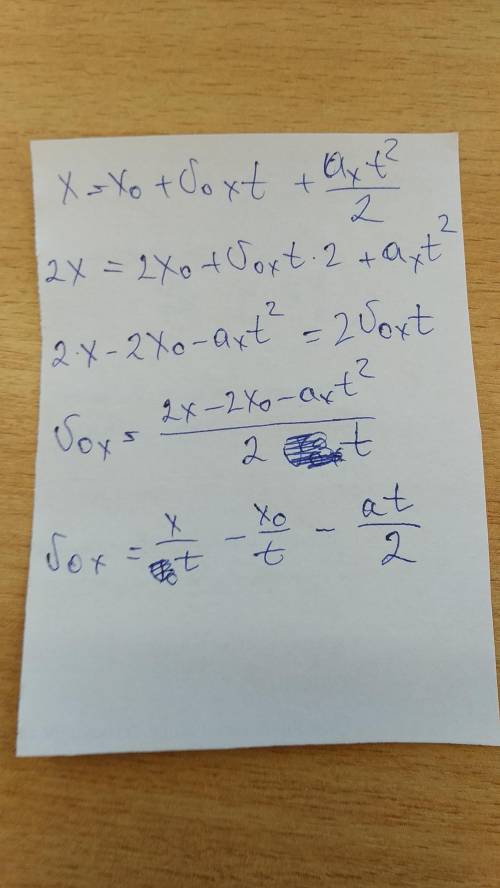 x = x₀ + υ₀ₓt + aₓt²/2
2x = 2x₀ + υ₀ₓt · 2 + aₓt²
2·x − 2x₀ − aₓt² = 2υ₀ₓt
υ₀ₓ = (2x − 2x₀ − aₓt²)/(2 t)
υ₀ₓ = x/t − x₀/t − at/2